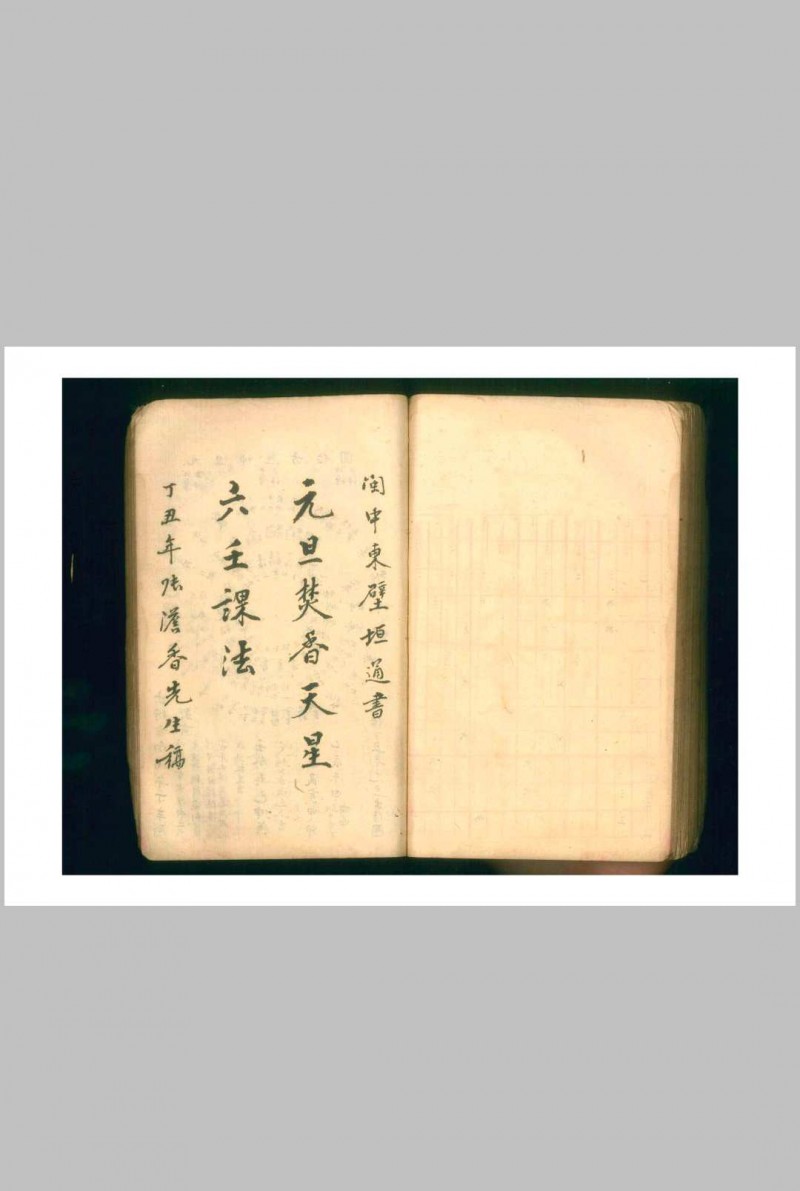 閩中東壁垣通書
元旦焚香天星
六壬課法
丁丑年張澹香先生稿